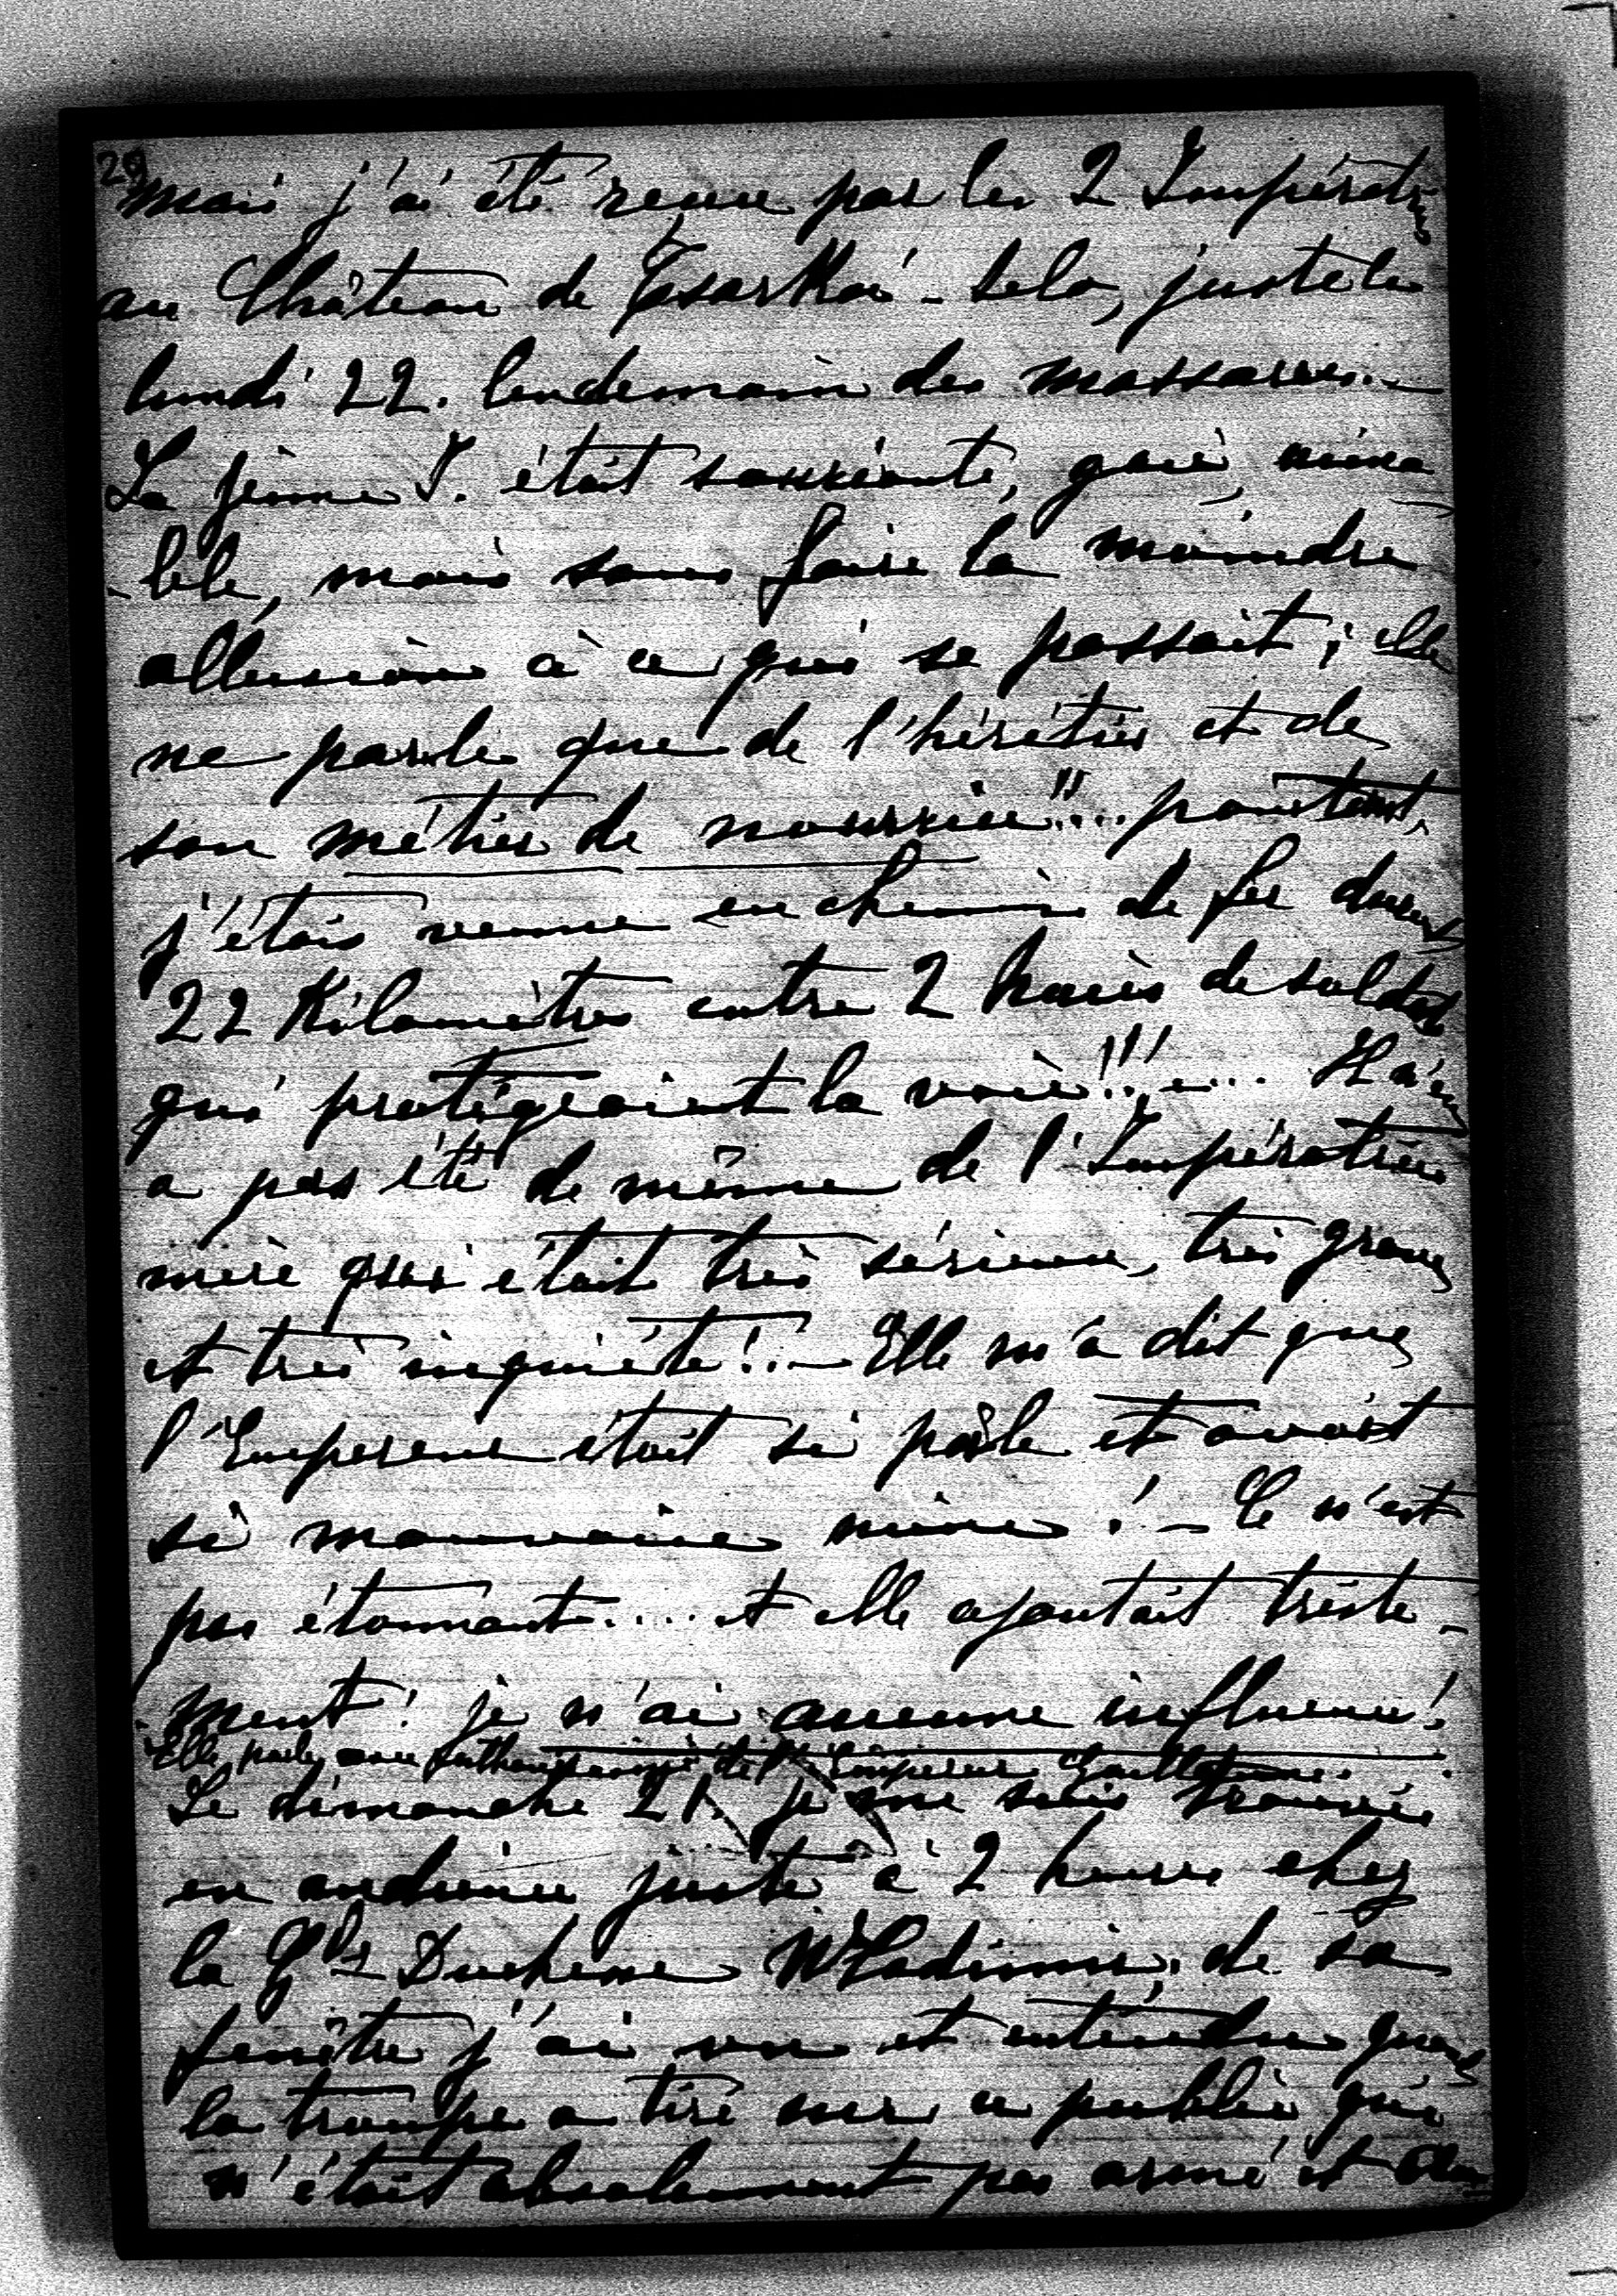 29
mais j'ai été reçue par les 2 Impératr.
au Château de Tsarskoé-Selo, juste le
lundi 22. lendemain des massacres. -
La jeune I. était souriante, gaie, aima
-ble, mais sans faire la moindre
allusion à ce qui se passait; elle
ne parle que de l'héritier et de
son métier de nourrice!!... pourtant,
j'étais venue en chemin de fer durant
22 Kilomètres entre 2 haies de soldats
qui protégeaient la voie!!!.... Il n'en
a pas été de même de l'Impératrice
mère qui était très sérieuse, très grave
et très inquiète!.. - Elle m'a dit que
l'Empereur était si pâle et avait
si mauvaise mine! - Ce n'est
pas étonnant.... et elle ajoutait triste-
-ment! je n'ai aucune influence!
Elle parle avec de l'Empereur Guillaume.
Le dimanche 21. je me suis trouvée
en audience juste à 2 heures chez
la Gde Duchesse Wladimir; de sa
fenêtre j'ai vu et entendu quand
la troupe a tiré sur ce public qui
n'était absolument pas armé et